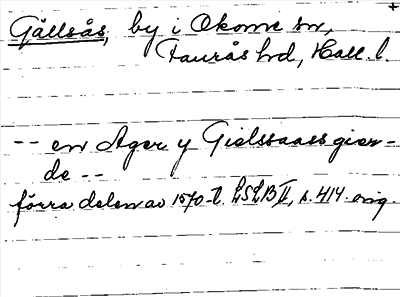 Gällsås, by i Okome sn,
Faurås hd, Hall. l.
-- en Ager y Gielssaassgier-
de --
förra delen av 1570-t. LSLB II, s. 414 orig.